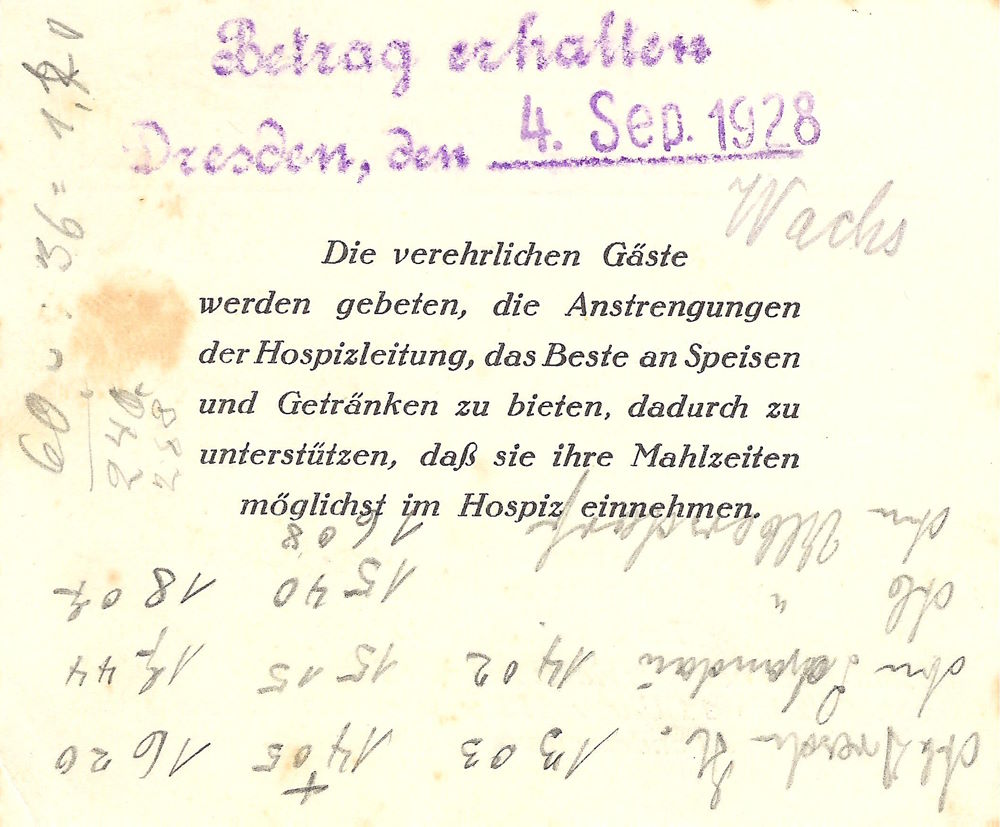 Betrag erhalten
Dresden, den 4. Sep. 1928
Wachs
Die verehrlichen Gäste
werden gebeten, die Anstrengungen
der Hospizleitung, das Beste an Speisen
und Getränken zu bieten, dadurch zu
unterstützen, daß sie ihre Mahlzeiten
möglichst im Hospiz einnehmen.
60 : 36 =
240
Ab Dresdn H. 13 03 14 05 16 20
An Schandau 14 02 15 15 17 44
Ab " 15 40 18 07
An Ulbersdorf 16 08